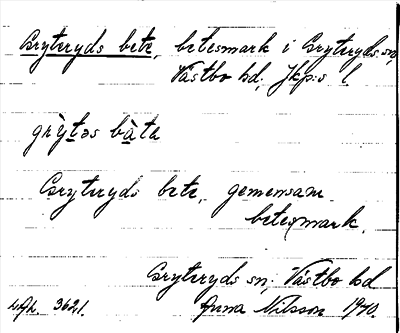 Gryteryds bete, betesmark i Gryteryds sn,
Västbo hd, Jkp:s l.
grỳtəs bàta
Gryteryds bete, gemensam
betesmark.
Gryteryds sn, Västbo hd
uppt. 3621. Anna Nilsson 1940.